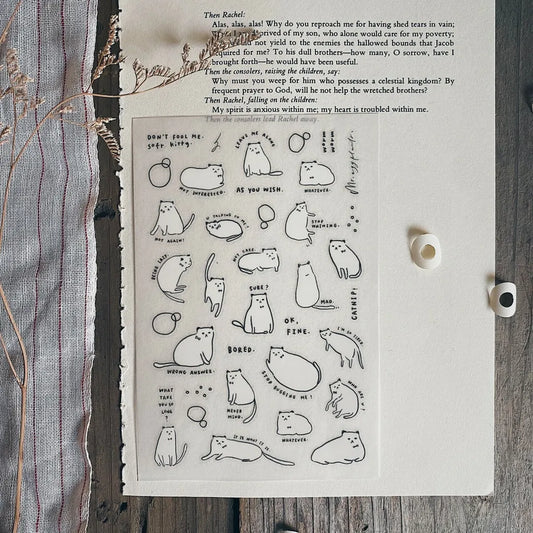 Then Rachel:
Alas, alas, alas! Why do you reproach me for having shed tears in vain;
prived of my son, who alone would care for my poverty;
not yield to the enemies the hallowed bounds that Jacob
quired for me? To his dull brothers—how many, O sorrow, have I
brought forth—he would have been useful.
Then the consolers, raising the children, say:
Why must you weep for him who possesses a celestial kingdom? By
frequent prayer to God, will he not help the wretched brothers?
Then Rachel, falling on the children:
My spirit is anxious within me; my heart is troubled within me.
Then the consolers lead Rachel away.
DON'T FOOL ME.
soft kitty.
LEAVE ME ALONE
MEOW
MEOW
NOT INTERESTED.
AS YOU WISH.
WHATEVER.
NOT AGAIN!
U TALKING TO ME?
STOP
WHINING.
DEAR LAZY.
NOT CARE.
SURE?
MAD.
CATNIP!
OK,
FINE.
WRONG ANSWER.
BORED.
STOP BUGGING ME!
WHAT
TAKE
YOU SO
LONG
?
NEVER
MIND.
WHO ARE U?
IT IS WHAT IT IS.
WHATEVER.